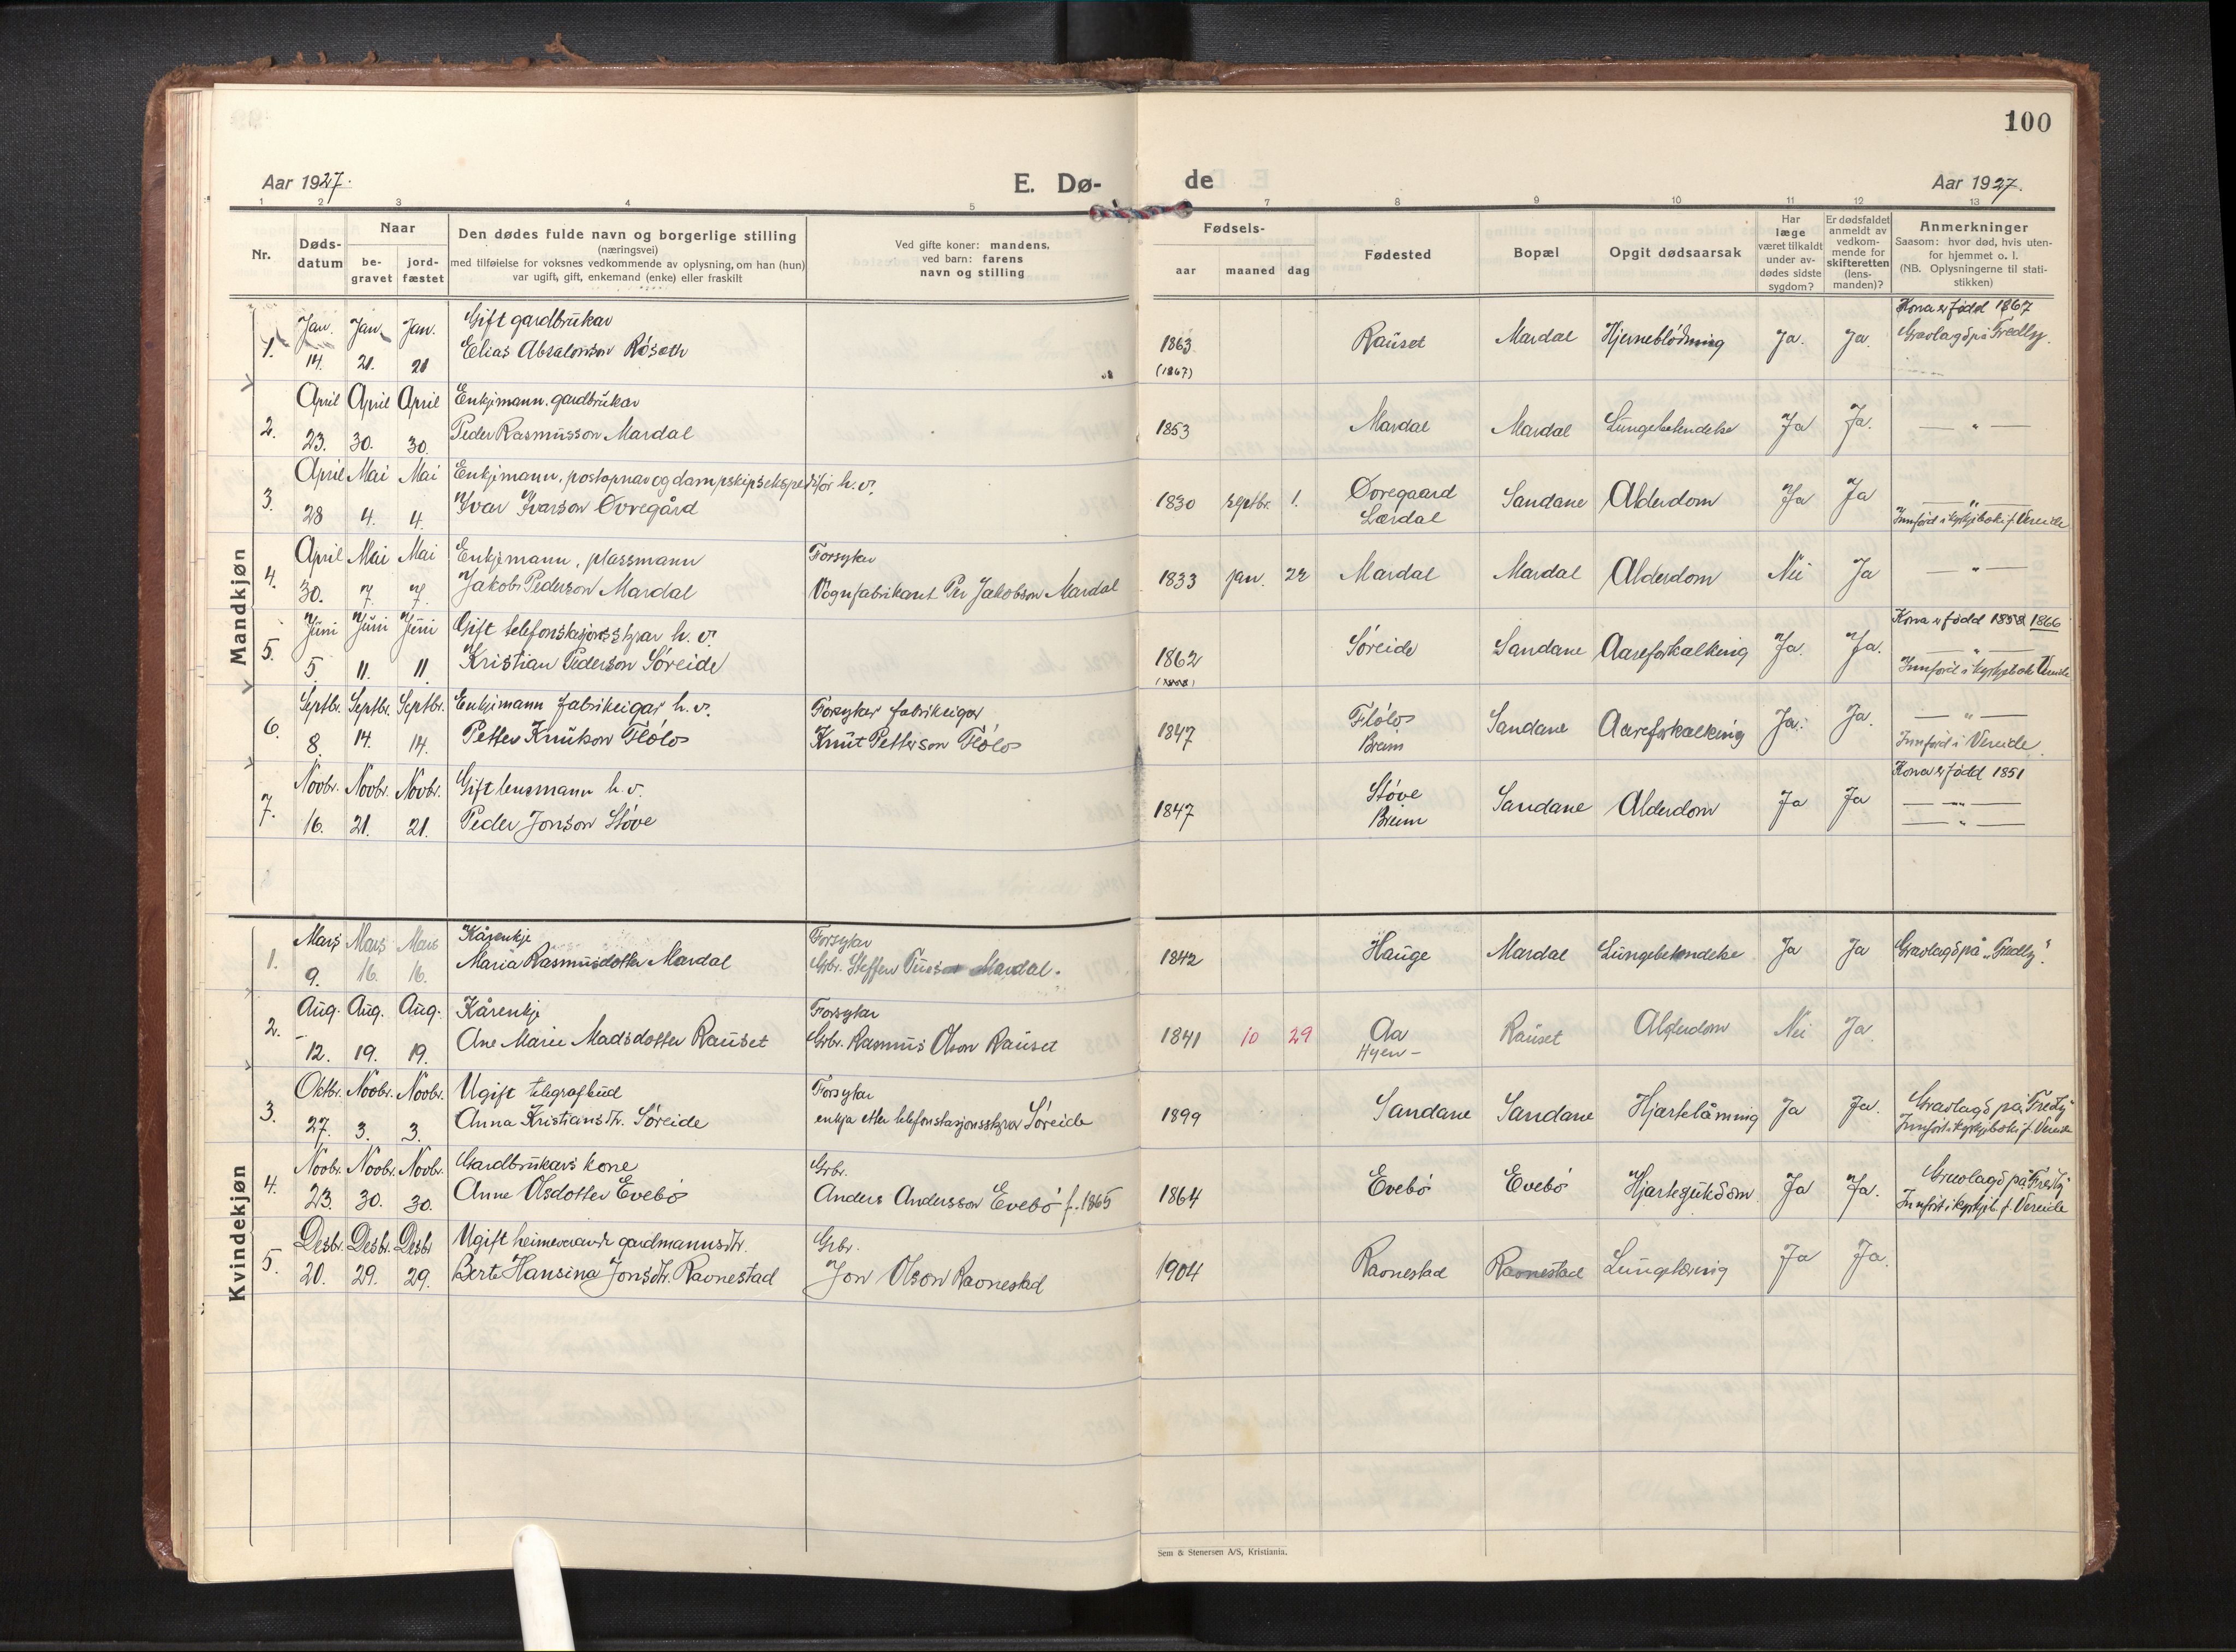 100
Aar 1927.
E. Dø-
de
Aar 1927.
1 2 3 4 5 7 8 9 10 11 12 13
Nr.
Døds-
datum
Naar
be-
gravet
jord-
fæstet
Den dødes fulde navn og borgerlige stilling
(næringsvei)
med tilføielse for voksnes vedkommende av oplysning, om han (hun)
var ugift, gift, enkemand (enke) eller fraskilt
Ved gifte koner: mandens,
ved barn: farens
navn og stilling
Fødsels-
aar maaned dag
Fødested
Bopæl
Opgit dødsaarsak
Har
læge
været tilkaldt
under av-
dødes sidste
sygdom?
Er dødsfaldet
anmeldt av
vedkom-
mende for
skifteretten
(lens-
manden)?
Anmerkninger
Saasom: hvor død, hvis uten-
for hjemmet o. l.
(NB. Oplysningerne til stati-
stikken)
Mandkjøn
Jan. Jan. Jan. Gift gardbrukar Kona er fødd 1867
1. 14. 21. 21 Elias Absalonson Røseth 1863 Rauset Mardal Hjerneblødning Ja. Ja. Gravlagd på Fredly.
(1867)
April April April Enkjemann, gardbrukar
2. 23. 30. 30. Peder Rasmusson Mardal 1853 Mardal Mardal Lungebetendelse Ja Ja. — " —
April Mai Mai Enkjemann, postopnar og dampskipsekspeditør h. v.
3. 28 4. 4. Ivar Ivarson Øvregård 1830 septbr. 1. Øvregaard Sandane Alderdom Ja Ja — " —
Lærdal Innførd i kyrkjeboki f. Vereide
April Mai Mai Enkjemann, plassmann Forsytar
4. 30. 7. 7. Jakob Pederson Mardal Vognfabrikant Per Jakobson Mardal 1833 jan. 22 Mardal Mardal Alderdom Nei Ja — " —
Juni Juni Juni Gift telefonstasjonsstyrar h. v. Kona er fødd 1858 1866
5. 5. 11. 11. Kristian Pederson Søreide 1862 Søreide Sandane Aareforkalking Ja. Ja. — " —
Innførd i kyrkjebok Vereide
Septbr. Septbr. Septbr. Enkjemann fabrikeigar h. v. Forsytar fabrikeigar
6. 8. 14. 14. Petter Knutson Fløløs Knut Petterson Fløløs 1847 Fløløs Sandane Aareforkalking Ja. Ja. — " —
Breim Innførd i Vereide.
Novbr. Novbr. Novbr. Gift lensmann h. v. Kona er fødd 1851
7. 16. 21. 21. Peder Jonson Støve 1847 Støve Sandane Alderdom Ja Ja — " —
Breim — " —
Kvindekjøn
Mars Mars Mars Kårenkje Forsytar
1. 9. 16. 16. Maria Rasmusdotter Mardal Grbr. Steffen Mardal. 1842 Hauge Mardal Lungebetendelse Ja Ja Gravlagd på „Fredly“.
Aug. Aug. Aug. Kårenkje Forsytar
2. 12. 19. 19. Ane Marie Madsdotter Rauset Grbr. Rasmus Olson Rauset 1841 10 29 Aa Rauset Alderdom Nei Ja
Hyen –
Oktbr. Novbr. Novbr. Ugift telegrafbud Forsytar
3. 27. 3. 3. Anna Kristiansdtr. Søreide enkja etter telefonstasjonsstyrar Søreide 1899 Sandane Sandane Hjartelåming Ja Ja. Gravlagd på „Fredly“
Innført i kyrkjeboki f. Vereide
Novbr. Novbr. Novbr. Gardbrukars kone Grbr.
4. 23. 30. 30. Anne Olsdotter Evebø Anders Andersson Evebø f. 1865 1864 Evebø Evebø Hjartesjukdom Ja Ja. Gravlagd på „Fredly“
Innført i kyrkjeb. f. Vereide
Desbr. Desbr. Desbr Ugift heimeverande gardmannsdtr. Grbr.
5. 20. 29. 29. Berte Hansina Jonsdtr. Ravnestad Jon Olson Ravnestad 1904 Ravnestad Ravnestad Lungetæring Ja Ja.
Sem & Stenersen A/S, Kristiania.